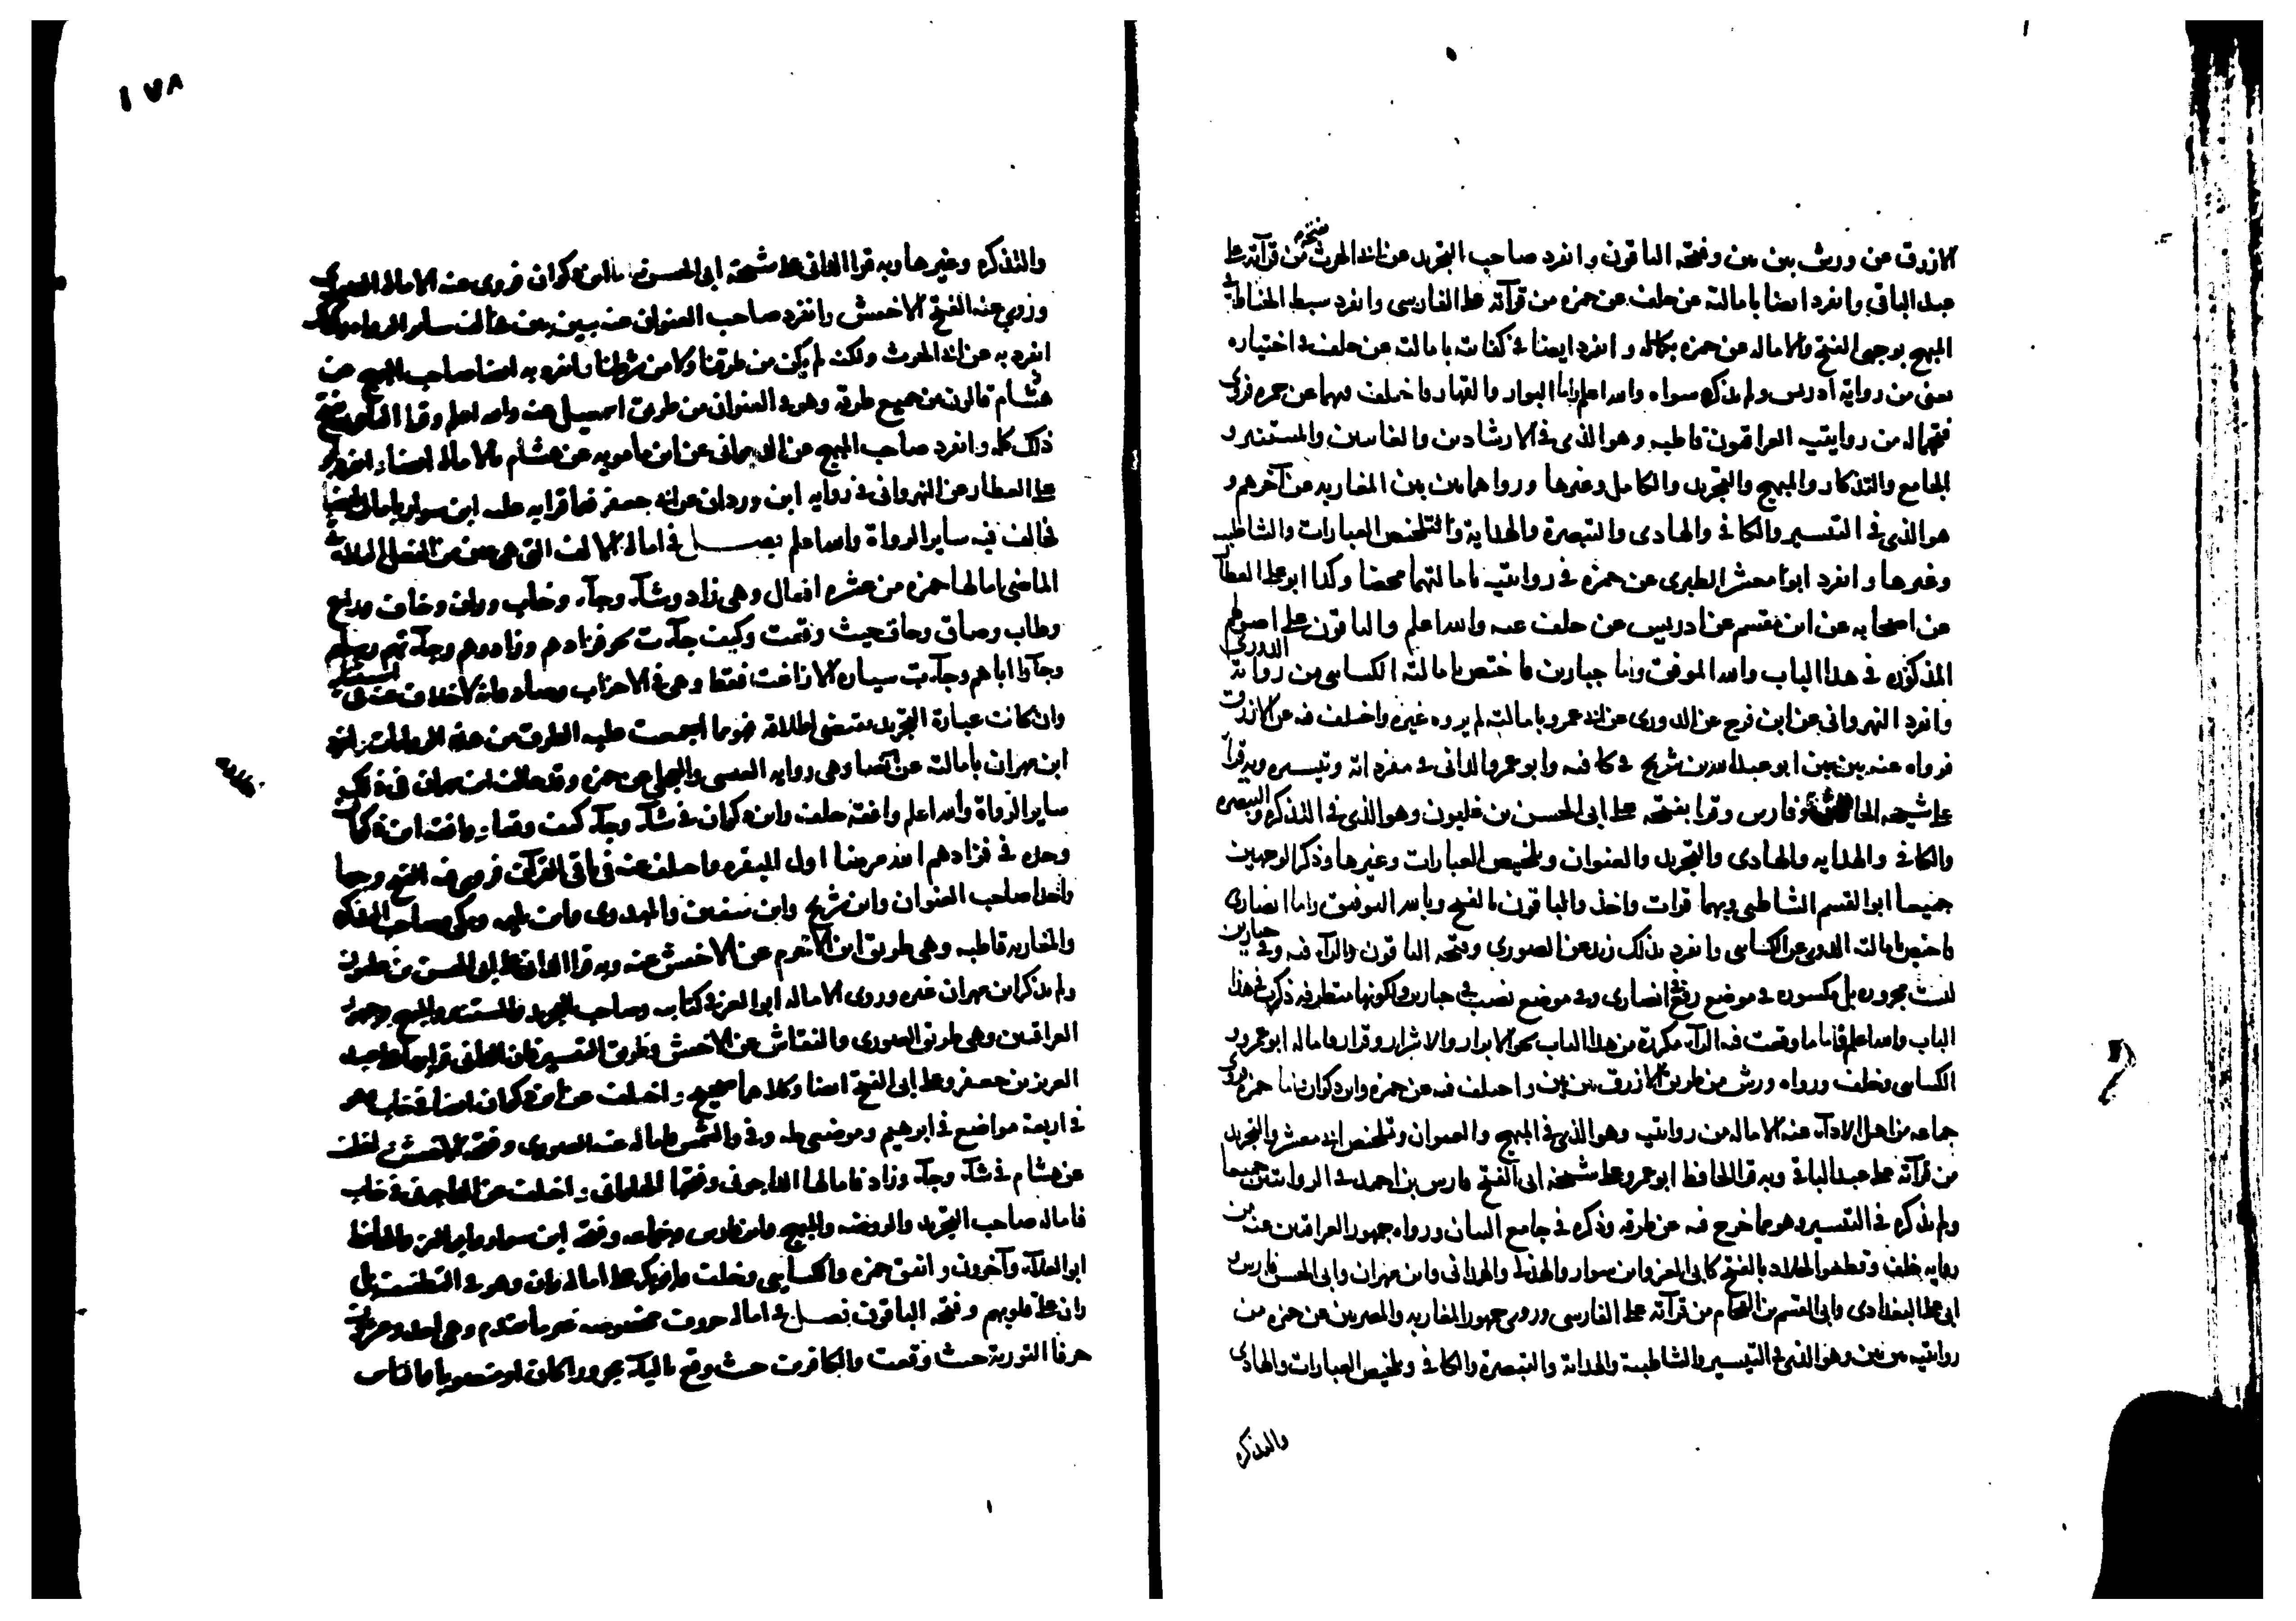 الازرق عن ورش بين بين وفتحه الباقون وانفرد صاحب التجريد عن ابى الحرث بفتحه من قرآته على
عبد الباقى وانفرد ايضا بامالته عن خلف عن حمزه من قرآته على الفارسى وانفرد سبط الخياط فى
المبهج بوجهى الفتح والاماله عن حمزه بكماله وانفرد ايضا فى كفايته بامالته عن خلف فى اختياره
يعنى من رواية ادريس ولم يذكره سواه والله اعلم واما البوار والقهار فاختلف فيهما عن حمزه فروى
فتحهما له من روايتيه العراقيون قاطبه وهو الذى فى الارشادين والغايتين والمستنير و
الجامع والتذكار والمبهج والتجريد والكامل وغيرها ورواهما بين بين المغاربه عن آخرهم و
هو الذى فى التيسير والكافى والهادى والتبصرة والهداية والتلخيص العبارات والشاطبيه
وغيرها وانفرد ابو معشر الطبرى عن حمزه فى روايتيه بامالتهما محضا وكذا ابو على العطار
عن اصحابه عن ابن مقسم عن ادريس عن خلف عنه والله اعلم والباقون على اصولهم
المذكوره فى هذا الباب والله الموفق واما جبارين فاختص بامالته الكسائى من رواية الدورى
وانفرد النهروانى عن ابن فرح عن الدورى عن ابى عمرو بامالته لم يروه غيره واختلف فيه عن الازرق
فرواه عنه بين بين ابو عبد الله بن شريح فى كافيه وابو عمرو الدانى فى مفرداته وتيسيره وبه قرأ
على شيخه الخاقانى وفارس وقرا بفتحه على ابى الحسن بن غلبون وهو الذى فى التذكره والتبصره
والكافى والهدايه والهادى والتجريد والعنوان وتلخيص العبارات وغيرها وذكر الوجهين
جميعا ابو القسم الشاطبى وبهما قرات واخذ والباقون بالفتح وبالله التوفيق واما انصارى
فاختص بامالته الدورى عن الكسائى وانفرد بذلك زيد عن الصورى وفتحه الباقون والرآء فيه وفى جبارين
ليست مجروره بل مكسوره فى موضع رفع فى انصارى وفى موضع نصب فى جبارين ولكونها متطرفه ذكرت فى هذا
الباب والله اعلم فاما ما وقعت فيه الرآء مكررة من هذا الباب نحو الابرار والاشرار وقرار فاماله ابو عمرو و
الكسائى وخلف ورواه ورش من طريق الازرق بين بين واختلف فيه عن حمزه وابن ذكوان فاما حمزه فروى
جماعه من اهل الادآء عنه الاماله من روايتيه وهو الذى فى المبهج والعنوان وتلخيص ابى معشر والتجريد
من قرآته على عبد الباقى وبه قرأ الحافظ ابو عمرو على شيخه ابى الفتح فارس بن احمد فى الروايتين جميعا
ولم يذكره فى التيسير وهو مما خرج فيه عن طرقه وذكره فى جامع البيان ورواه جمهور العراقيين عنه من
روايه خلف وقطعوا لخلاد بالفتح كابى العز وابن سوار والهذلى والهمدانى وابن مهران وابى الحسن فارس و
ابى على البغدادى وابى القسم بن الفحام من قرآته على الفارسى وروى جمهور المغاربه والمصريين عن حمزه من
روايتيه بين بين وهو الذى فى التيسير والشاطبية والهداية والتبصرة والكافى وتلخيص العبارات والهادى
والتذكره
١٧٨
والتذكره وغيرها وبه قرا الدانى على شيخه ابى الحسن واما ابن ذكوان فروى عنه الاماله الصورى
وروى عنه الفتح الاخفش وانفرد صاحب العنوان عنه ببين بين خالف ساير الرواه وكذلك
انفرد به عن ابى الحرث ولكنه لم يكن من طرقنا ولا من شرطنا وانفرد به ايضا صاحب المبهج عن
هشام قالون من جميع طرقه وهو فى العنوان من طريق اسمعيل عنه والله اعلم وقرا الباقون بفتح
ذلك كله وانفرد صاحب المبهج عن عن ابن مامويه عن هشام بالاماله ايضا وانفرد ابو
على العطار عن النهروانى فى روايه ابن وردان عن ابى جعفر فيما قرا به عليه ابن سوار بامالته ايضا
فخالف فيه ساير الرواة والله اعلم فصل فى امالة الالف التى هى عين من الفعل الثلاثى
الماضى امالها حمزه من عشره افعال وهى زاد وشآء وجآء وخاب وران وخاف وزاغ
وطاب وضاق وحاق حيث وقعت وكيف جآءت نحو فزادهم وزادوهم وجآءتهم وجآء
وجآؤا اباهم وجآءت سياره الا زاغت فقط وهى فى الاحزاب وصاد فانه لاخلاف عنه فى استثنآئه
وان كانت عبارة التجريد تقتضى اطلاقه فهو ما اجمعت عليه الطرق من هذه الروايات وانفرد
ابن مهران بامالته عن خلاد ايضا وهى روايه العبسى والعجلى عن حمزه وقد خالف ابن مهران فى ذلك
ساير الرواة والله اعلم وافقه خلف وابن ذكوان فى شآء وجآء كيف وقعا ووافقه ابن ذكوان
وحده فى فزادهم الله مرضا اول البقره واختلف عنه فى باقى القرآن فروى فيه الفتح وجها
واحدا صاحب العنوان وابن شريح وابن سفين والمهدوى وابن بليمه ومكى وصاحب التذكره
والمغاربه قاطبه وهى طريق ابن الاخرم عن الاخفش عنه وبه قرا الدانى على ابى الحسن بن غلبون
ولم يذكر ابن مهران غيره وروى الاماله ابو العز فى كتابيه وصاحب التجريد والمستنير والمبهج وجمهور
العراقيين وهى طريق الصورى والنقاش عن الاخفش وطريق التيسير فان الدانى قرا بها على عبد
العزيز بن جعفر وعلى ابى الفتح ايضا وكلاهما صحيح واختلف عن ابن ذكوان ايضا فى خاب وهو
فى اربعة مواضع فى ابرهيم وموضعى طه وفى والشمس فاماله عنه الصورى وفتحه الاخفش واختلف
عن هشام فى شآء وجآء وزاد فامالها الداجونى وفتحها الحلوانى واختلف عن الداجونى فى خاب
فاماله صاحب التجريد والروضه والمبهج وابن فارس وجماعه وفتحه ابن سوار وابو العز والحافظ
ابو العلآء وآخرون واتفق حمزه والكسآيى وخلف وابو بكر على امالة ران وهو فى التطفيف بل
ران على قلوبهم وفتحه الباقون فصل فى امالة حروف مخصوصه غير ما تقدم وهى احد وعشرون
حرفا التورية حيث وقعت والكافرين حيث وقع باليآء مجرورا كان او منصوبا والناس